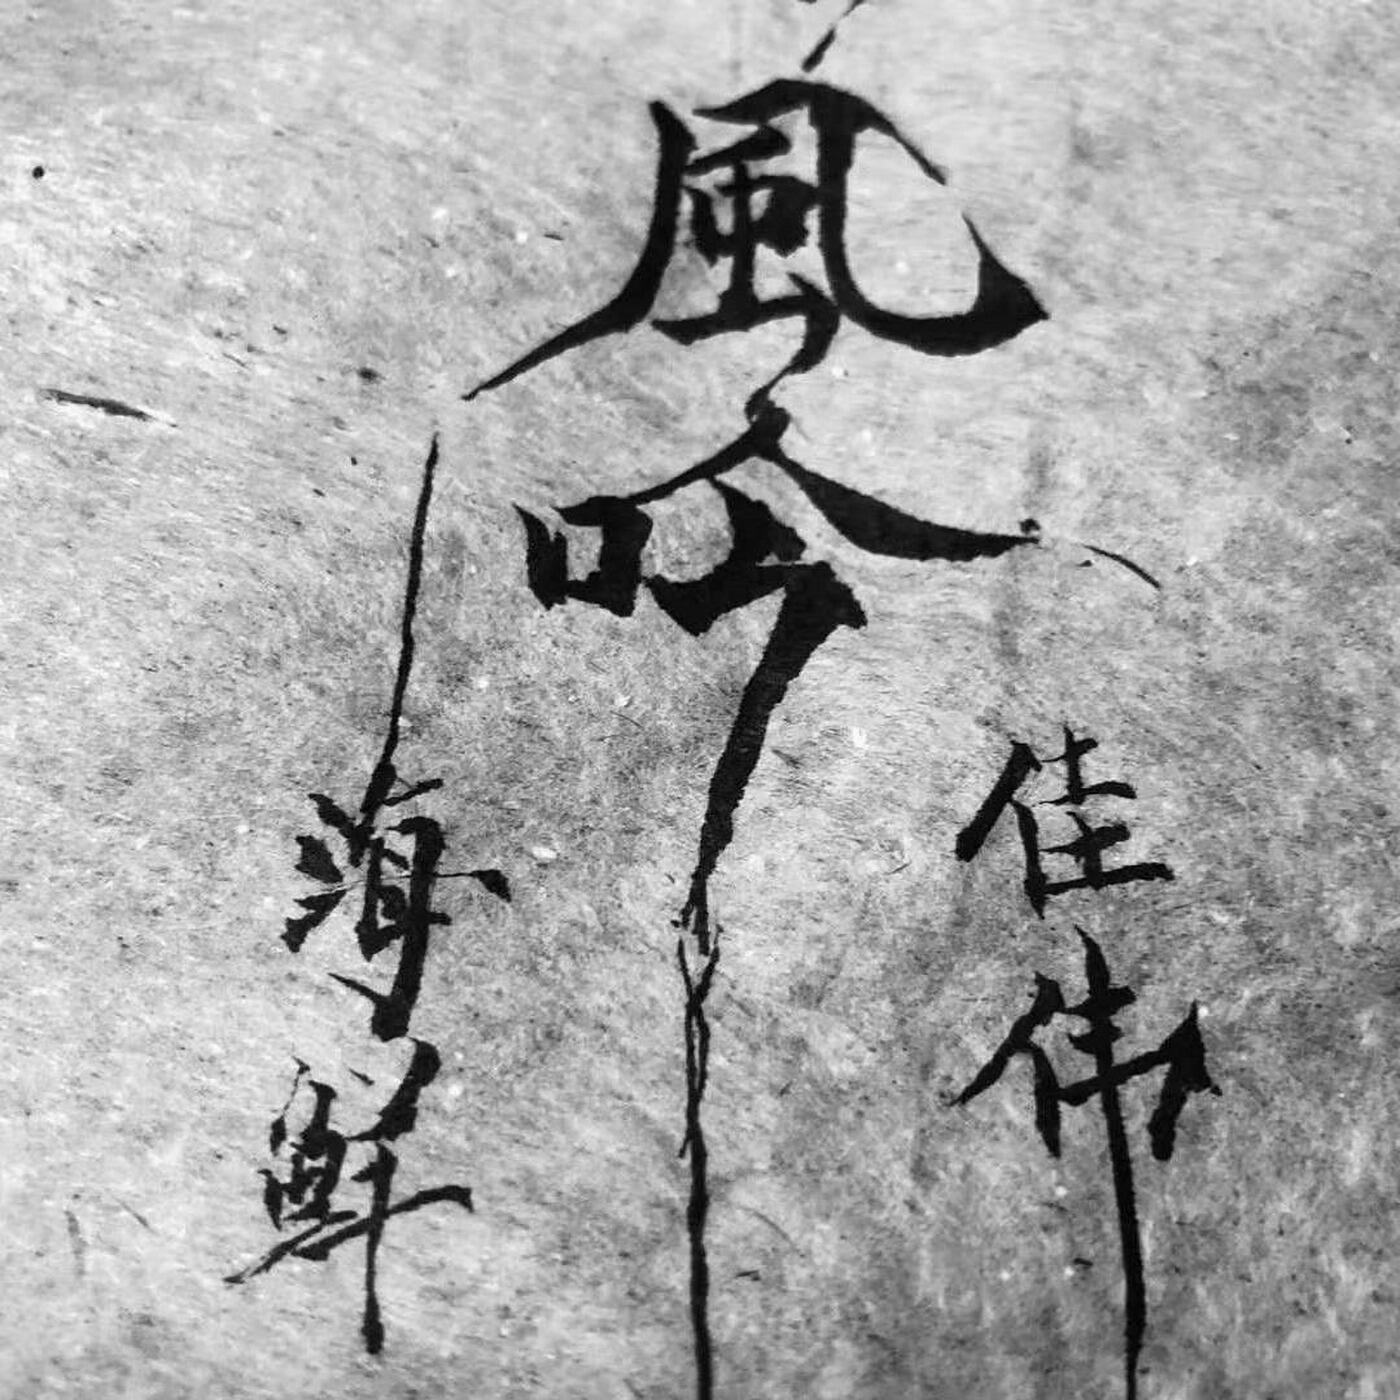 佳伟
風吟
海鮮